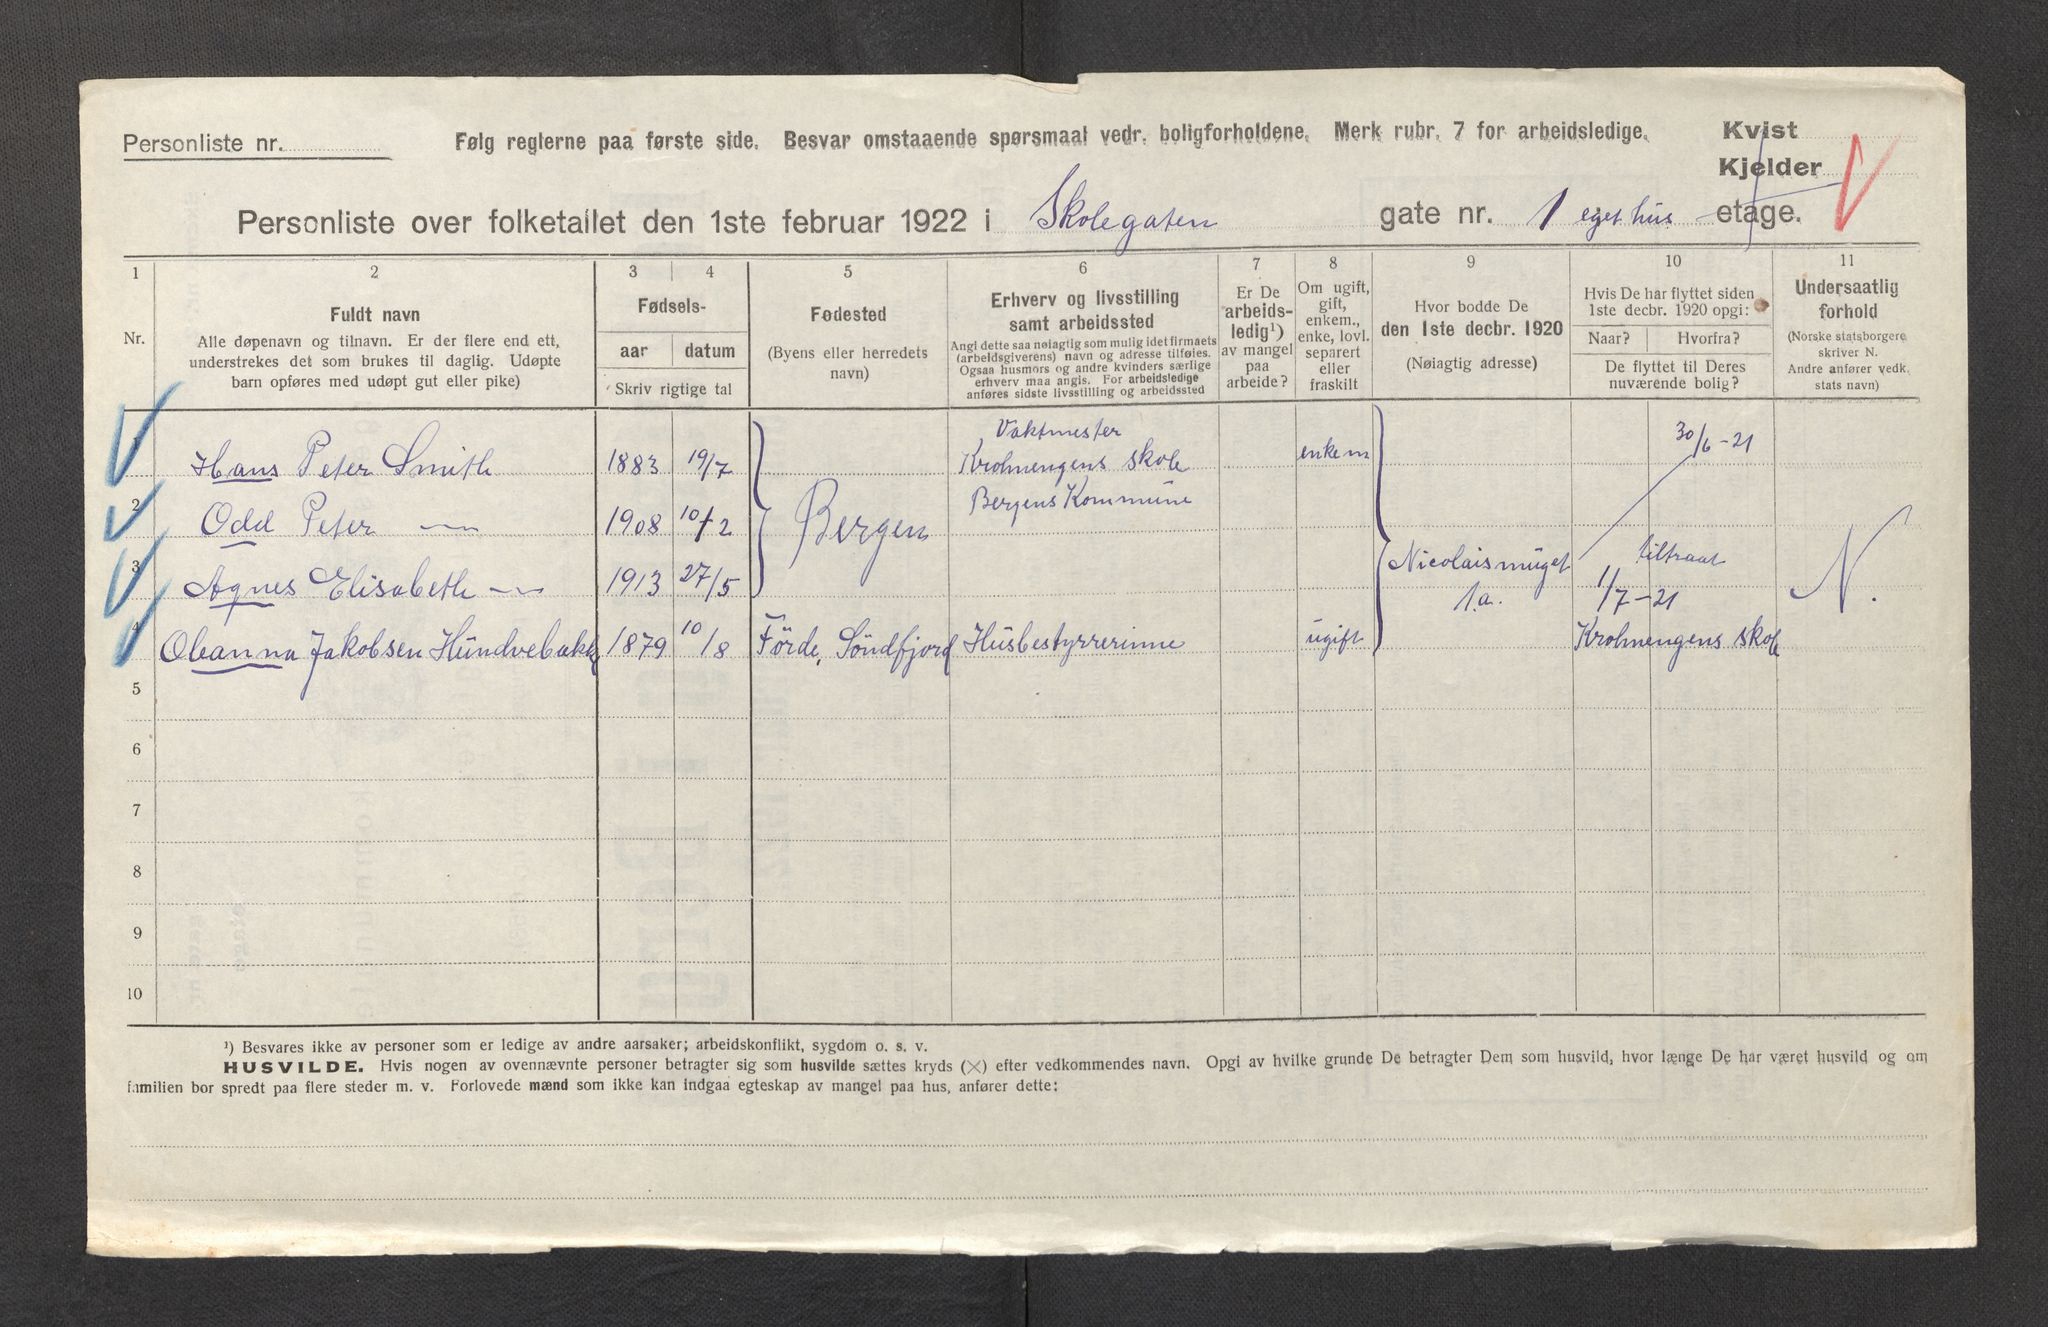 Personliste nr.
Følg reglerne paa første side. Besvar omstaaende spørsmaal vedr. boligforholdene. Merk rubr. 7 for arbeidsledige.
Kvist
Kjelder
Personliste over folketallet den 1ste februar 1922 i Skolegaten gate nr. 1 eget hus etage.
1 2 3 4 5 6 7 8 9 10 11
Nr.
Fuldt navn
Alle døpenavn og tilnavn. Er der flere end ett,
understrekes det som brukes til daglig. Udøpte
barn opføres med udøpt gut eller pike)
Fødsels-
aar datum
Skriv rigtige tal
Fødested
(Byens eller herredets
navn)
Erhverv og livsstilling
samt arbeidssted
Angi dette saa nøiagtig som mulig idet firmaets
(arbeidsgiverens) navn og adresse tilføies.
Ogsaa husmors og andre kvinders særlige
erhverv maa angis. For arbeidsledige
anføres sidste livsstilling og arbeidssted
Er De
arbeids-
ledig¹)
av mangel
paa
arbeide?
Om ugift,
gift,
enkem.,
enke, lovl.
separert
eller
fraskilt
Hvor bodde De
den 1ste decbr. 1920
(Nøiagtig adresse)
Hvis De har flyttet siden
1ste decbr. 1920 opgi:
Naar? Hvorfra?
De flyttet til Deres
nuværende bolig?
Undersaatlig
forhold
(Norske statsborgere
skriver N.
Andre anfører vedk.
stats navn)
Vaktmester 30/6-21
1 Hans Peter Smith 1883 19/7 Krohnengens skole enkem
Bergens Kommune
2 Odd Peter — 1908 10/2 Bergen
tiltraat
3 Agnes Elisabeth — 1913 27/5 Nicolaismuget 1a. 1/7-21 N.
4 Oleanna Jakobsen Hundvebakke 1879 10/8 Förde, Söndfjord Husbestyrrerinne ugift Krohnengens skole
5
6
7
8
9
10
¹) Besvares ikke av personer som er ledige av andre aarsaker; arbeidskonflikt, sygdom o. s. v.
HUSVILDE. Hvis nogen av ovennævnte personer betragter sig som husvilde sættes kryds (×) efter vedkommendes navn. Opgi av hvilke grunde De betragter Dem som husvild, hvor længe De har været husvild og om
familien bor spredt paa flere steder m. v. Forlovede mænd som ikke kan indgaa egteskap av mangel paa hus, anfører dette: